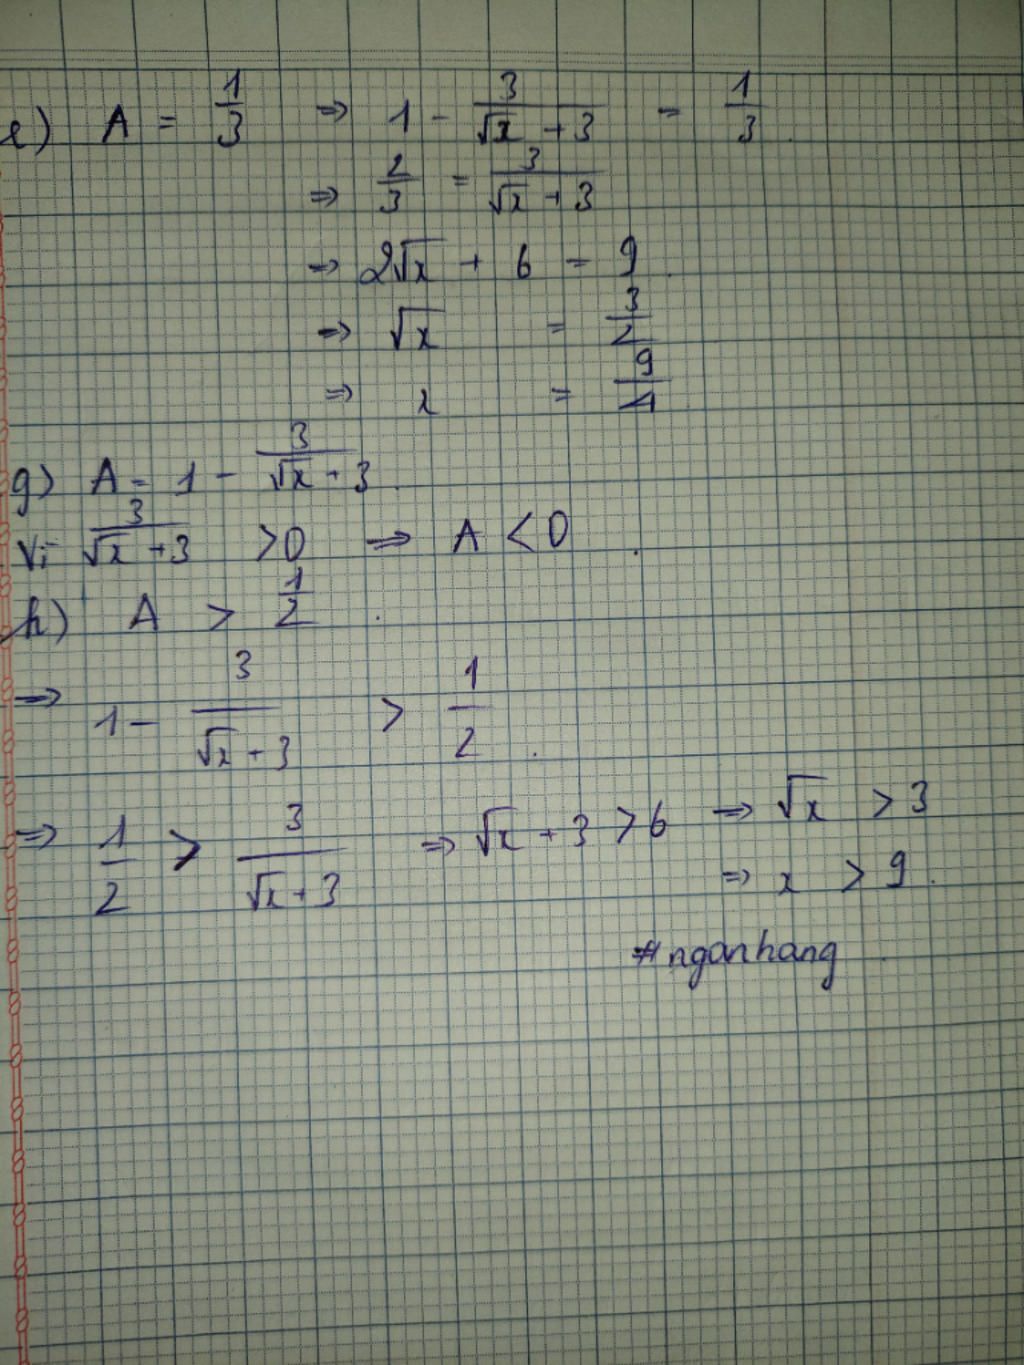 e) A = 1/3 ⇒ 1 - 3/(√x + 3) = 1/3
⇒ 2/3 = 3/(√x + 3)
⇒ 2√x + 6 = 9
⇒ √x = 3/2
⇒ x = 9/4
g) A = 1 - 3/(√x + 3)
Vì 3/(√x + 3) > 0 ⇒ A < 0
h) A > 1/2
⇒ 1 - 3/(√x + 3) > 1/2
⇒ 1/2 > 3/(√x + 3) ⇒ √x + 3 > 6 ⇒ √x > 3
⇒ x > 9
#nganhang